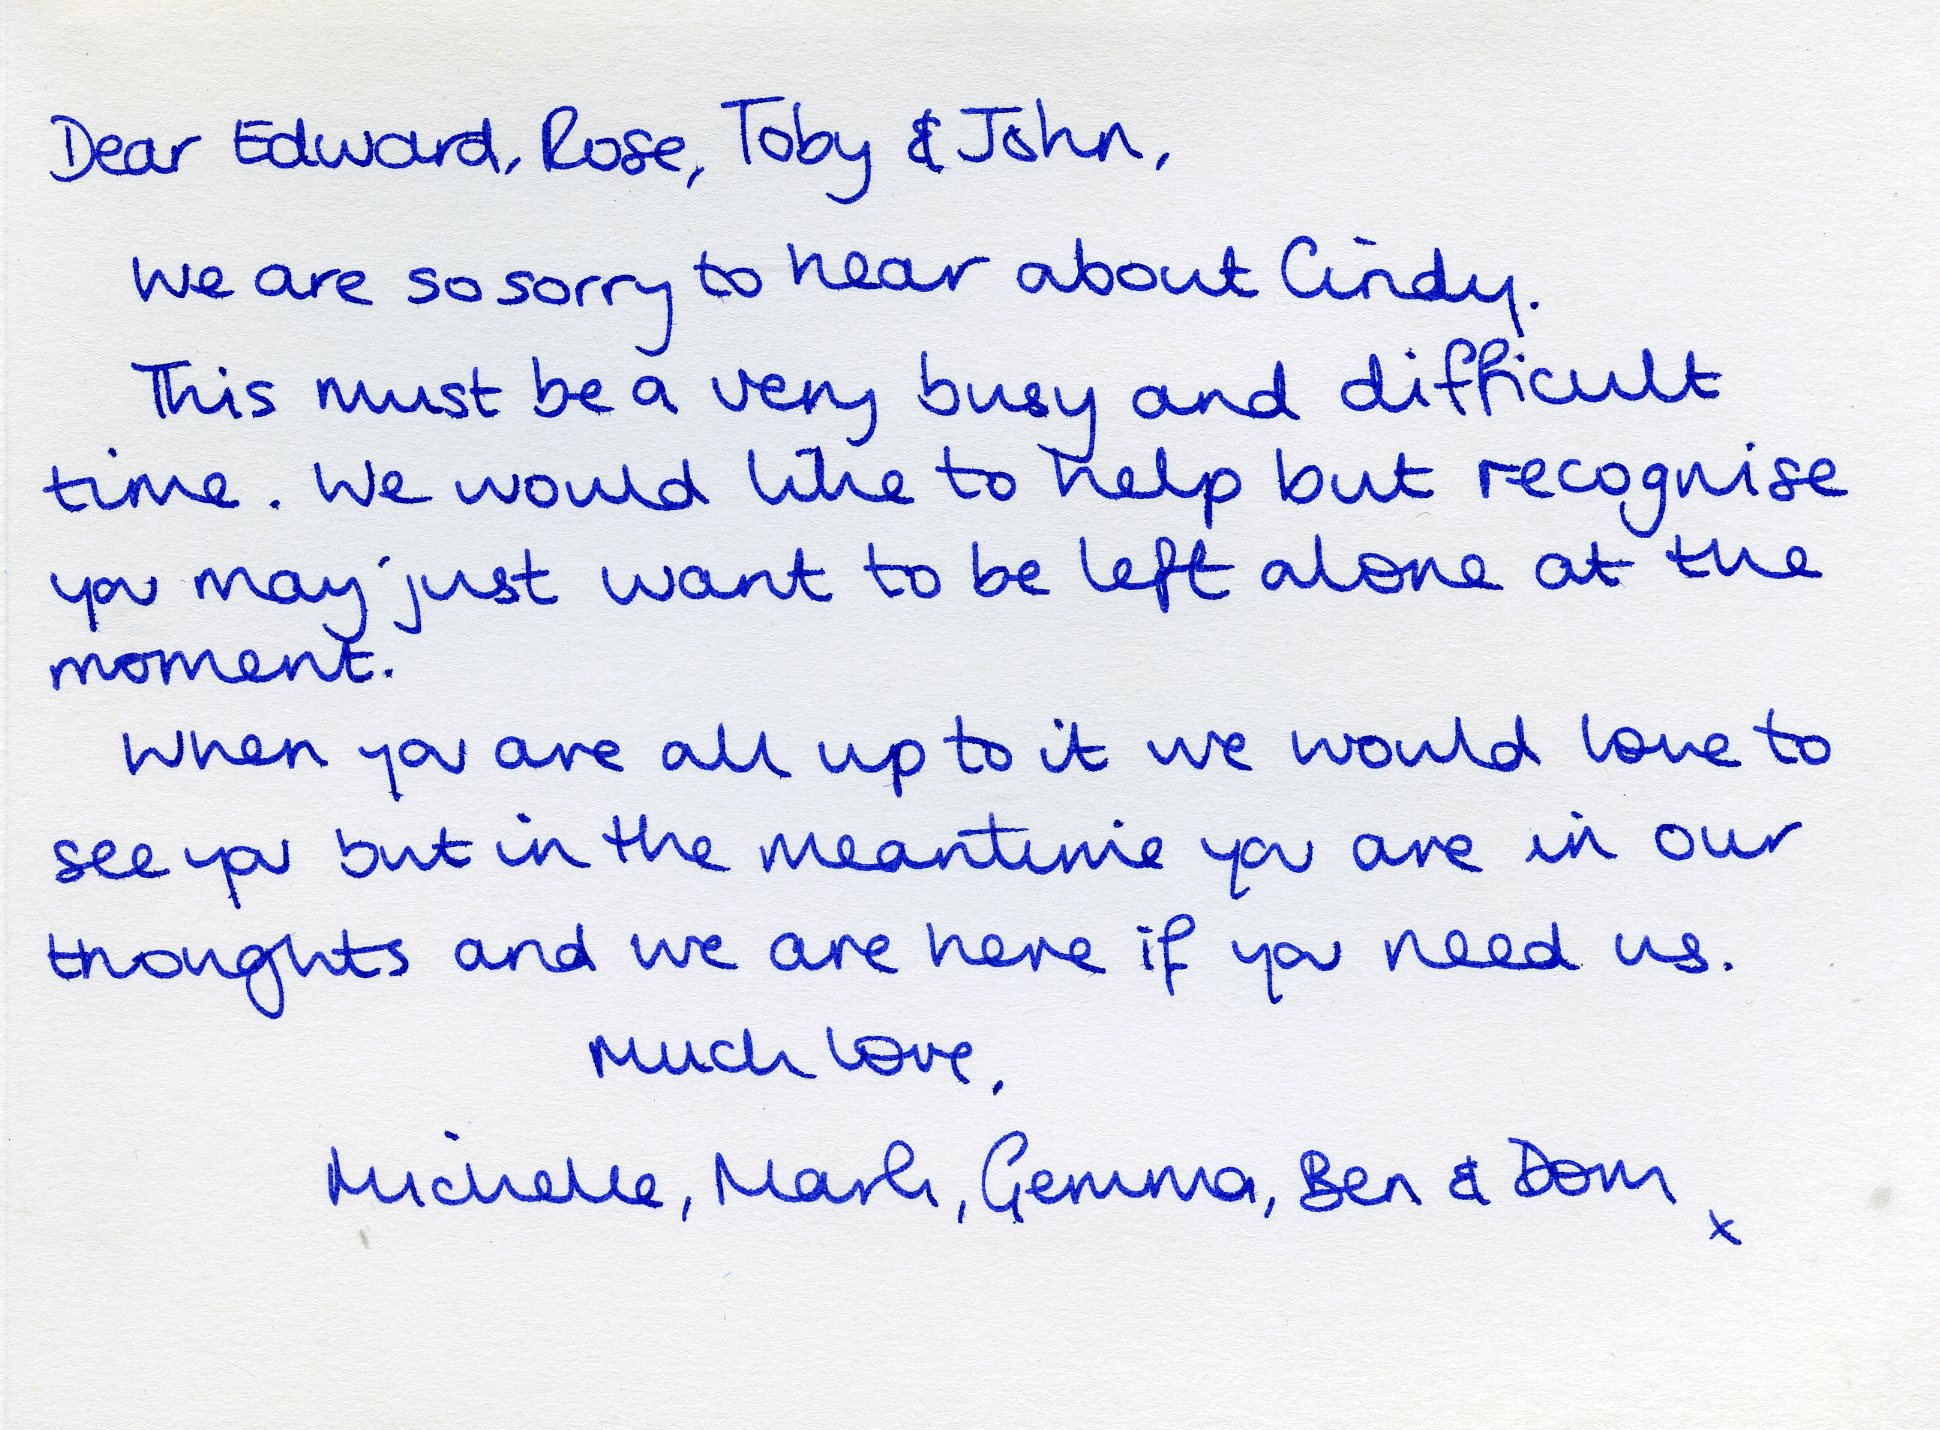 Dear Edward, Rose, Toby & John,
We are so sorry to hear about Cindy.
This must be a very busy and difficult
time. We would like to help but recognise
you may just want to be left alone at the
moment.
When you are all up to it we would love to
see you but in the meantime you are in our
thoughts and we are here if you need us.
Much love,
Michelle, Mark, Gemma, Ben & Dom
x